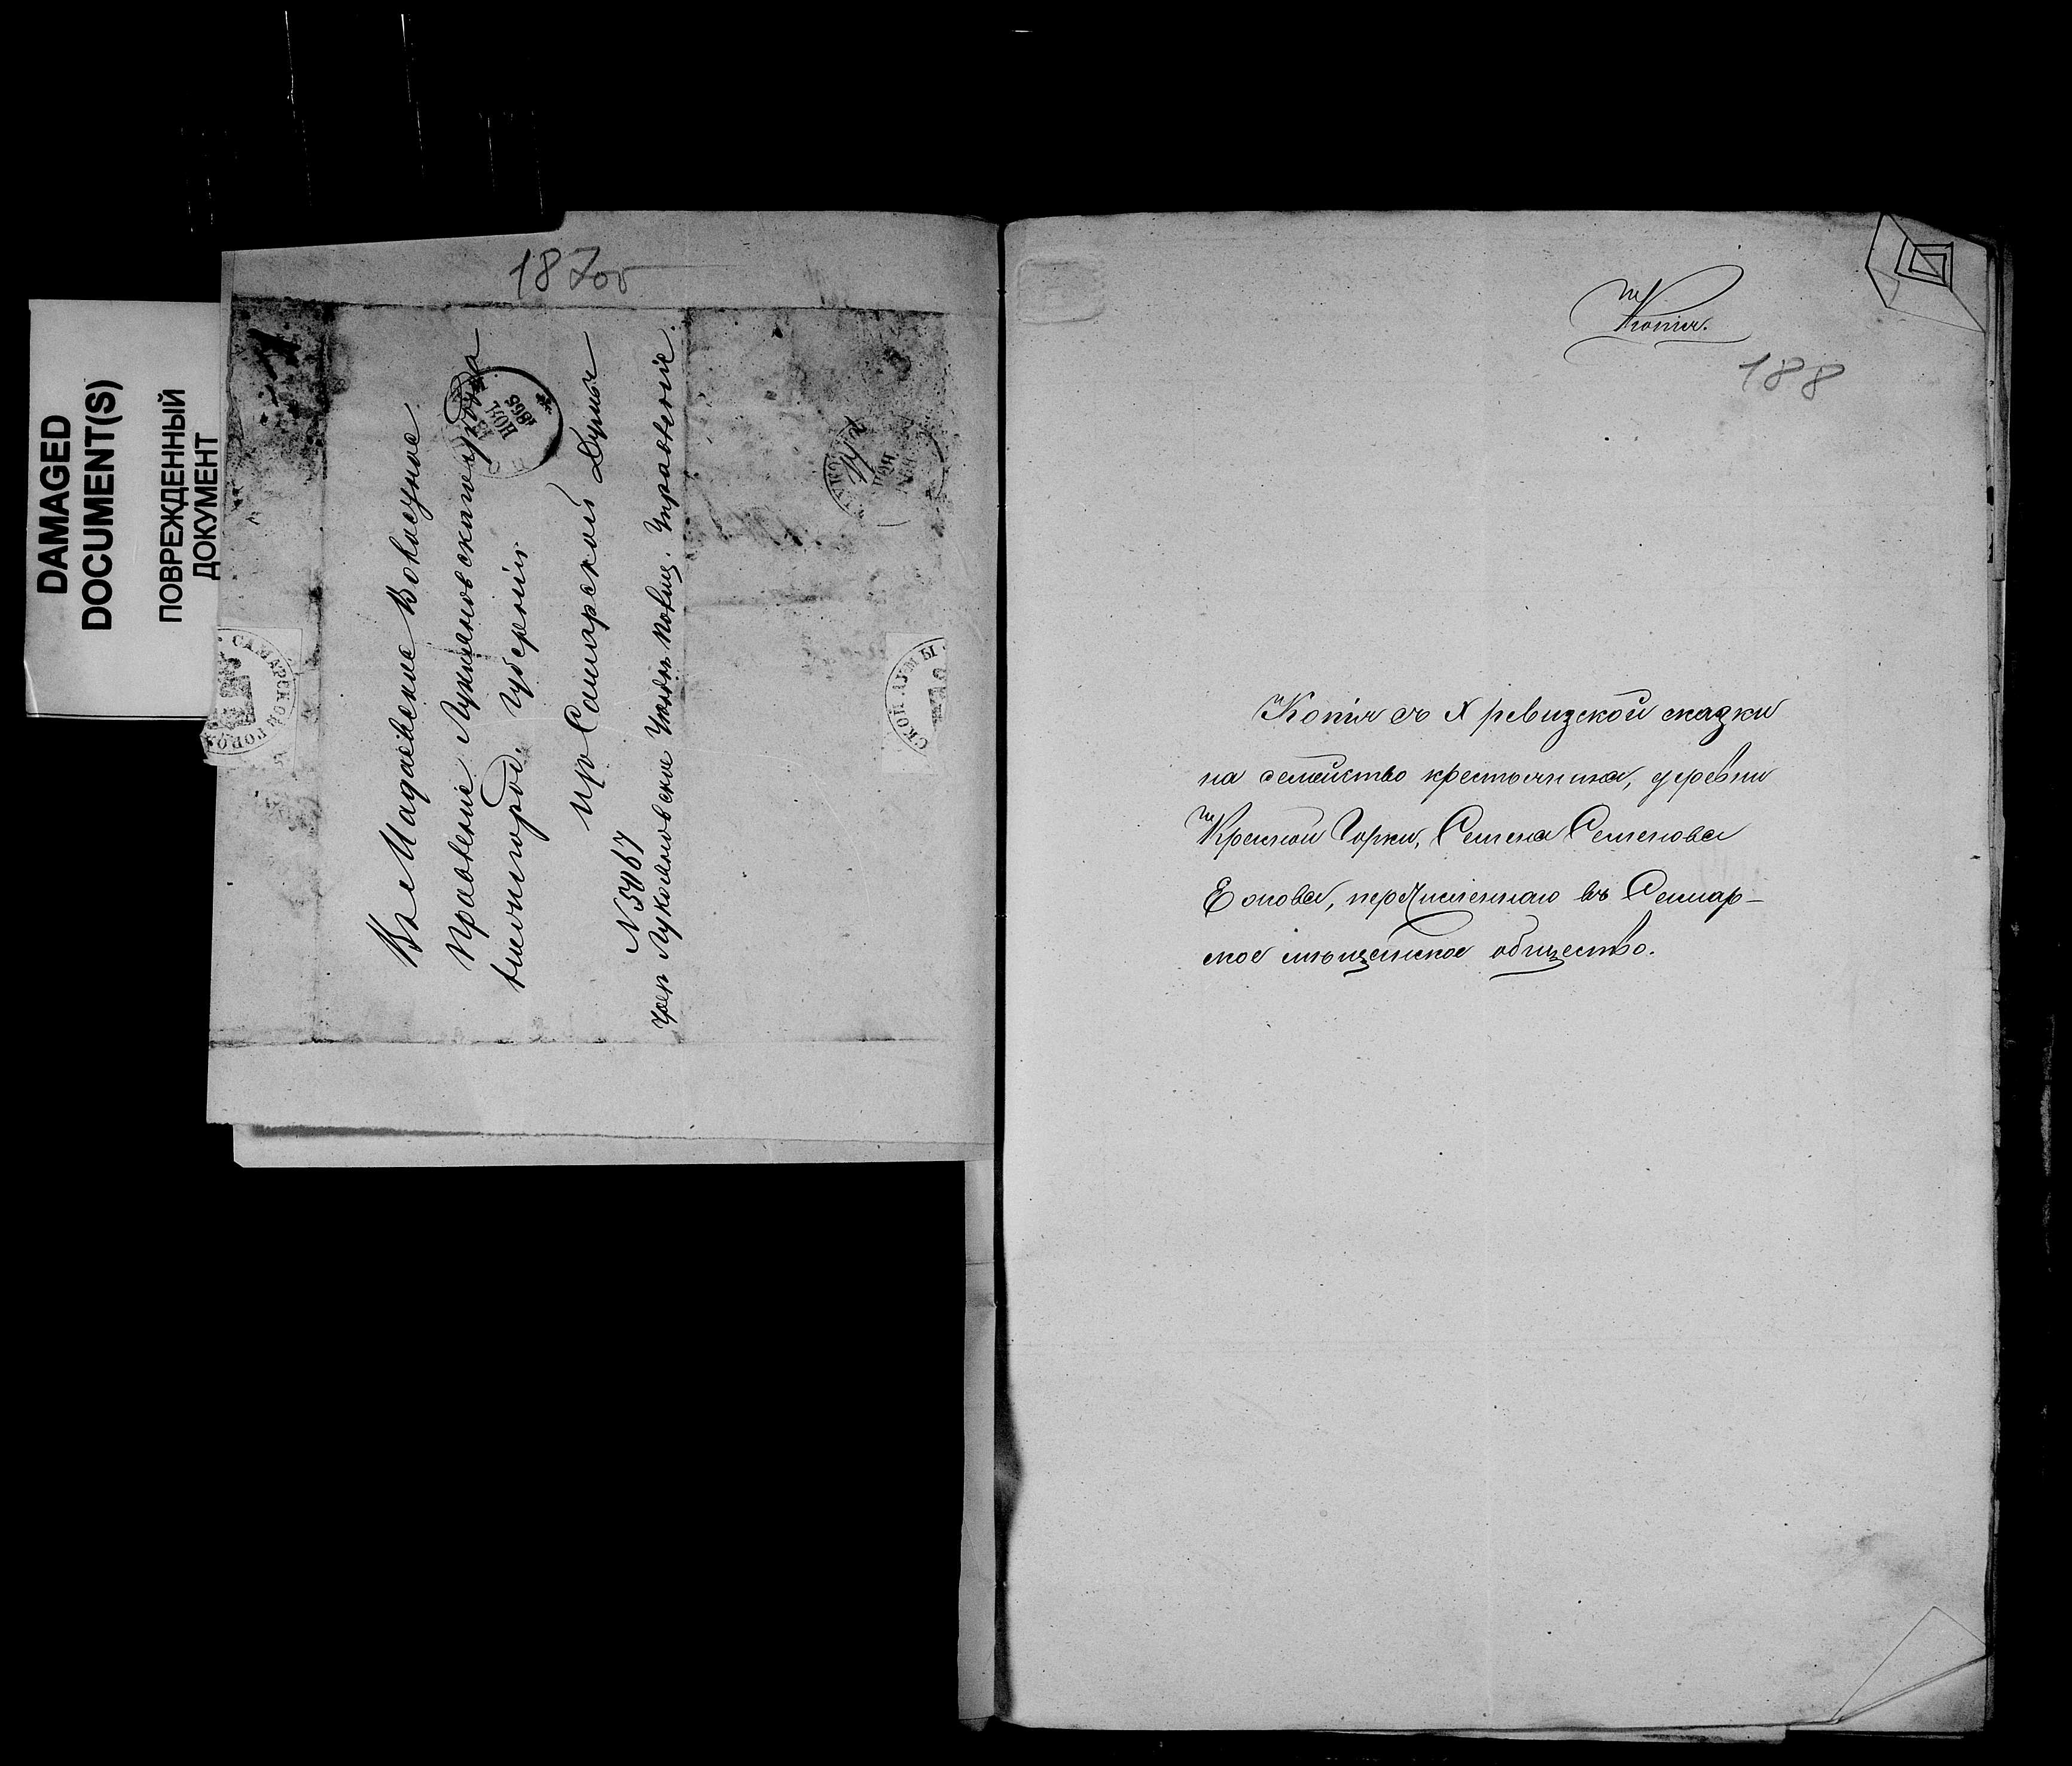 DAMAGED
DOCUMENT(S)
ПОВРЕЖДЕННЫЙ
ДОКУМЕНТ
187об
Въ Мадаевское Волостное
Правленіе Лукояновскаго уѣзда
Нижегород. Губерніи
изъ Самарской Думы
N 5067
чрез Лукояновское Уѣздн. Полиц. Управленіе.
НОЯ
1865
САМАРСКОЙ ГОРОД
СКОЙ ДУМЫ
Копія.
188
Копія съ X ревизской сказки
на семейство крестьянина, деревни
Красной Горки, Семена Семенова
перечисленнаго въ Самар-
ское мѣщанское общество.